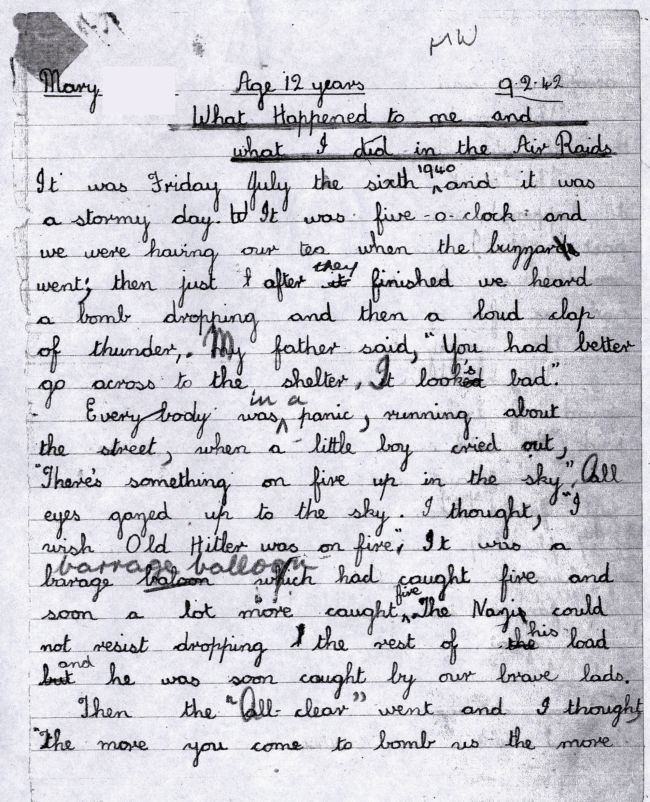 MW
Mary Age 12 years 9.2.42
What Happened to me and
what I did in the Air Raids
It was Friday July the sixth 1940 and it was
a stormy day. It was five-o-clock and
we were having our tea when the buzzard
went; then just after they finished we heard
a bomb dropping and then a loud clap
of thunder. My father said, "You had better
go across to the shelter, It looks bad".
Everybody was in a panic, running about
the street, when a little boy cried out,
"There's something on fire up in the sky". All
eyes gazed up to the sky. I thought, "I
wish Old Hitler was on fire", It was a
barrage balloon
barage baloon which had caught fire and
soon a lot more caught fire. The Nazi could
not resist dropping the rest of his load
and he was soon caught by our brave lads.
Then the "All clear" went and I thought
"the more you come to bomb us the more